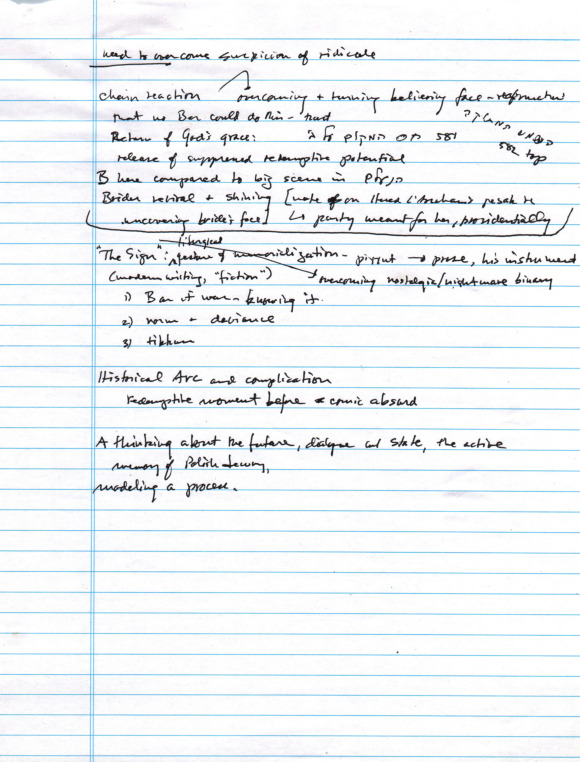 need to overcome suspicion of ridicule
chain reaction overcoming + turning believing face - reaffirmation
that us Ben could do this - trust
Return of God's grace: 581
582 top
release of suppressed redemptive potential
B here compared to big scene in
Brides revival + shining [note on
uncovering bride's face] ↳ party meant for her, providentially
liturgical
"The Sign": gesture of memorialization - piyyut → prose, his instrument
(modern writing, "fiction") → overcoming nostalgia/nightmare binary
1) Ban of war - knowing it.
2) norm + deviance
3) tikkun
Historical Arc and complication
Redemptive moment before comic absurd
A thinking about the future, dialogue and state, the active
memory of Polish Jewry,
modeling a process.